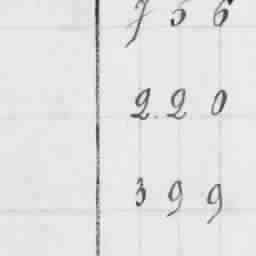 7 5 6
2.20
399